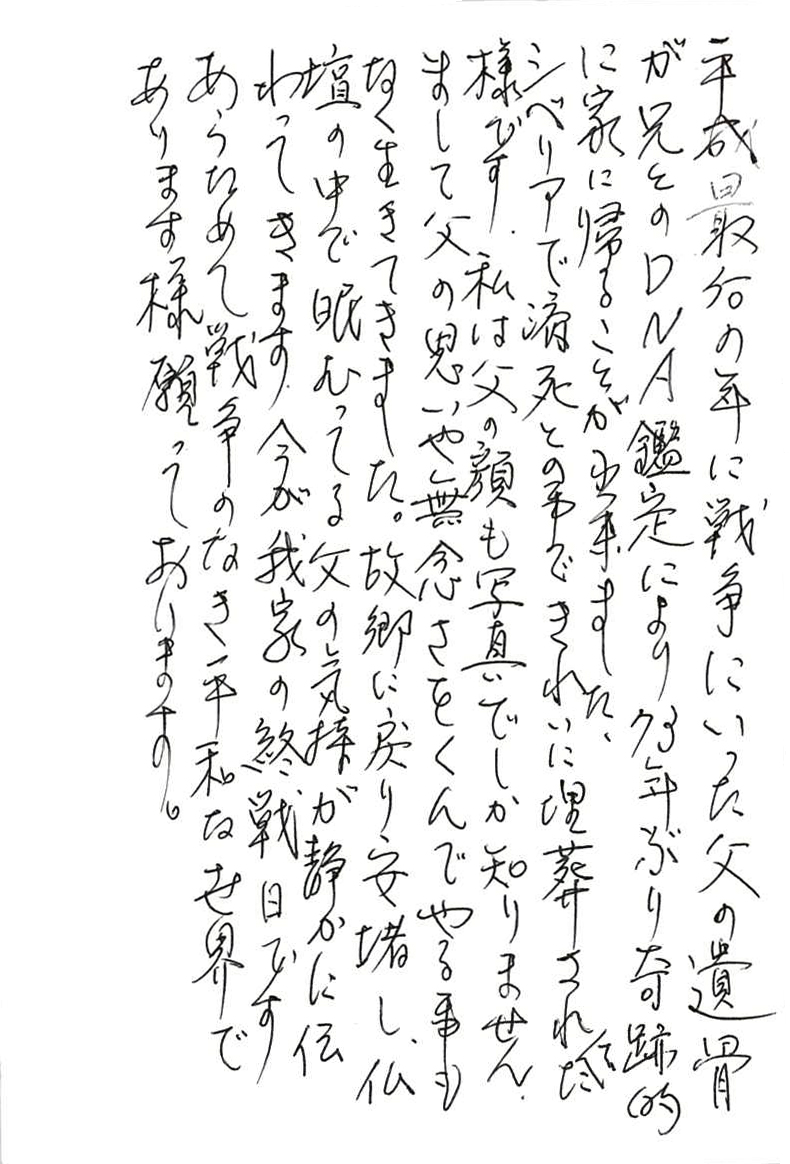 平成最后の年に戦争にいった父の遺骨
が兄とのDNA鑑定により73年ぶり奇跡的
に家に帰ることが出来ました、
シベリアで病死との事できれいに埋葬された
様です.私は父の顔も写真でしか知りません.
まして父の思いや無念さをくんでやる事も
なく生きてきました。故郷に戻り安堵し、仏
壇の中で眠むってる父の気持が静かに伝
わってきます.今が我家の終戦日です
あらためて戦争のなき平和な世界で
あります様願っております。